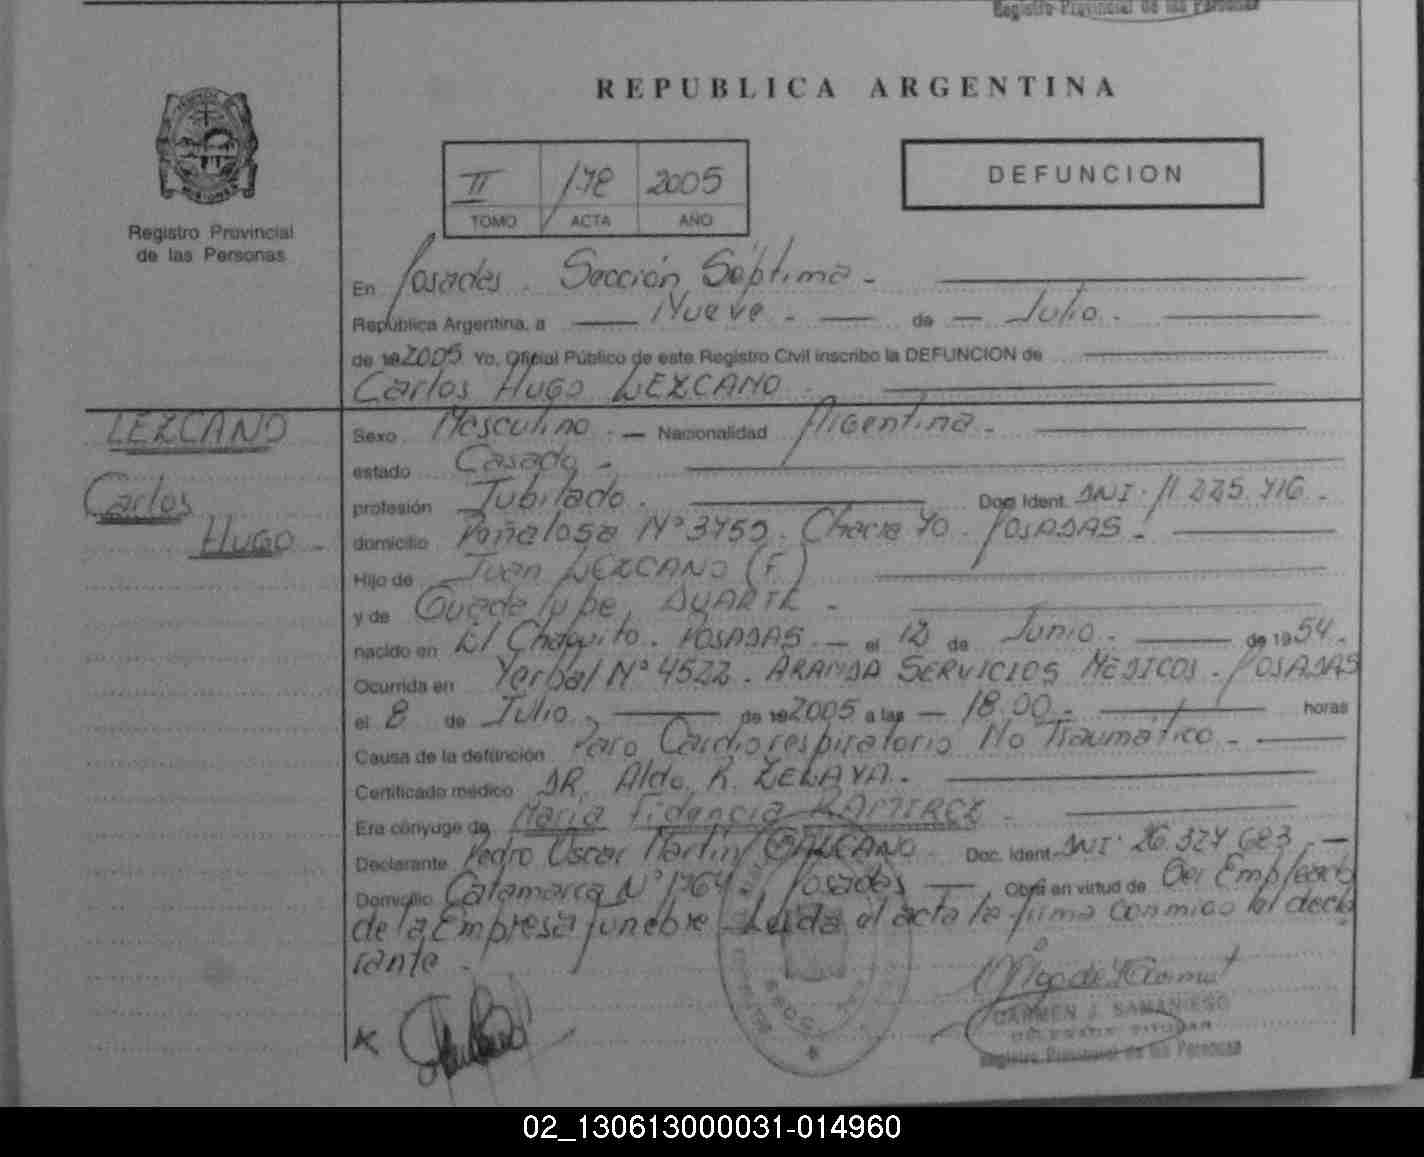 Registro Provincial de las Personas
REPUBLICA ARGENTINA
Registro Provincial
de las Personas
II 178 2005
TOMO ACTA AÑO
DEFUNCION
En Posadas. Sección Séptima.-
República Argentina, a Nueve.- de Julio.
de 192005 Yo, Oficial Público de este Registro Civil inscribo la DEFUNCION de
Carlos Hugo LEZCANO.
LEZCANO
Carlos
Hugo.-
Sexo Masculino.- Nacionalidad Argentina.-
estado Casado.-
profesión Jubilado. Doc. Ident. DNI. 11.225.716.-
domicilio Peñalosa Nº 3755. Chacra 70. POSADAS.-
Hijo de Juan LEZCANO (F)
y de Guadalupe DUARTE.-
nacido en El Chaquito. POSADAS.- el 12 de Junio. de 1954.-
Ocurrida en Yerbal Nº 4522. ARANDA SERVICIOS MEDICOS. POSADAS
el 8 de Julio de 192005 a las 18.00.- horas
Causa de la defunción Paro Cardiorespiratorio No Traumático.-
Certificado médico DR. Aldo R. ZELAYA.-
Era cónyuge de Maria Fidencia RAMIREZ.-
Declarante Pedro Oscar Martin Doc. Ident. DNI. 26.327.683.-
Domicilio Catamarca Nº 1764. Posadas Obra en virtud de Ser Empleado
de la Empresa funebre. Leída el acta la firma conmigo el decla
rante.
CARMEN J. SAMANIEGO
DELEGADA TITULAR
Registro Provincial de las Personas
02_130613000031-014960